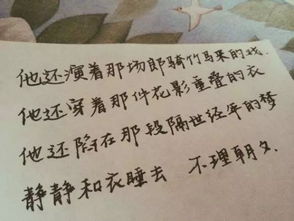 他还演着那场郎骑竹马来的戏.
他还穿着那件花影重叠的衣
他还陷在那段隔世经年的梦
静静和衣睡去 不理朝夕.